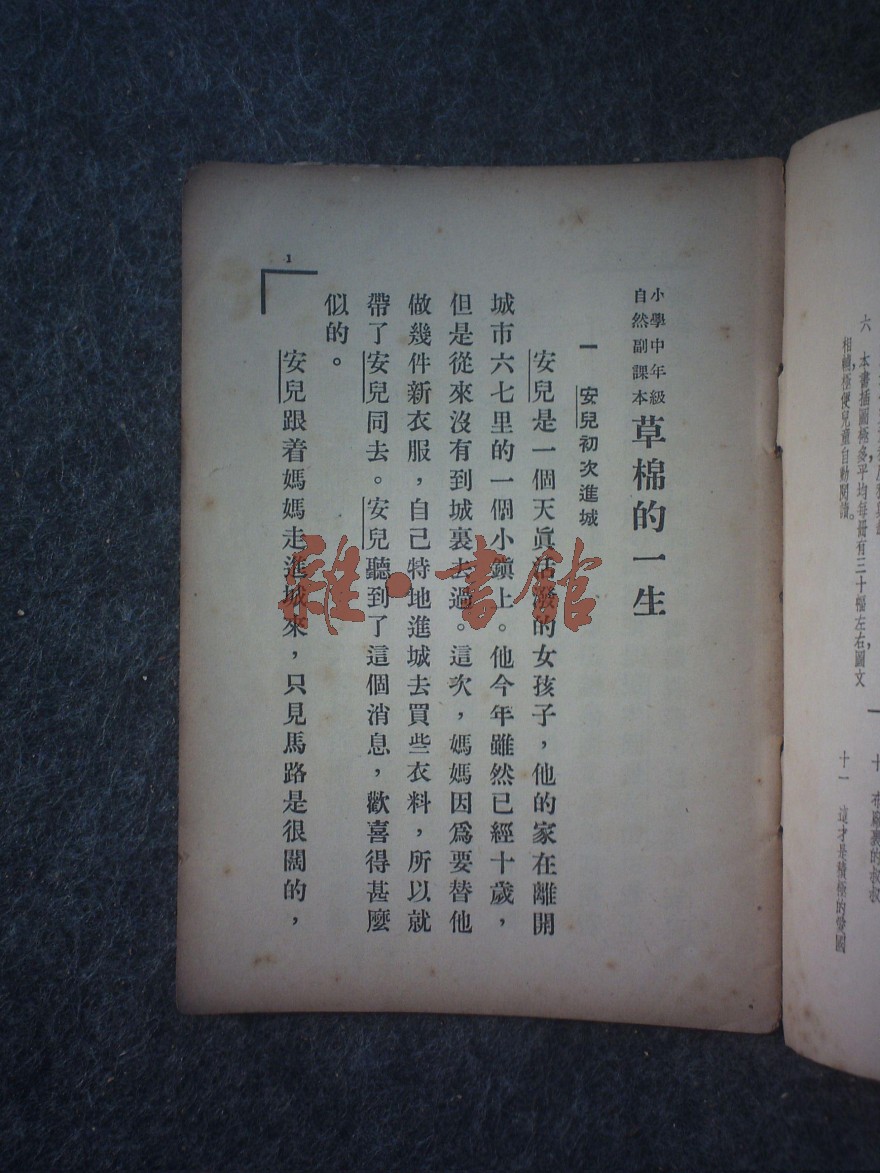 六　本書插圖極多，平均每册有三十幅左右，圖文
相輔，極便兒童自動閱讀。
十一　這才是積極的愛國
小學中年級
自然副課本
草棉的一生
一　安兒初次進城
安兒是一個天眞活潑的女孩子，他的家在離開
城市六七里的一個小鎮上。他今年雖然已經十歲，
但是從來沒有到城裏去過。這次，媽媽因爲要替他
做幾件新衣服，自己特地進城去買些衣料，所以就
帶了安兒同去。安兒聽到了這個消息，歡喜得甚麼
似的。
安兒跟着媽媽走進城來，只見馬路是很闊的，
1
雜·書館